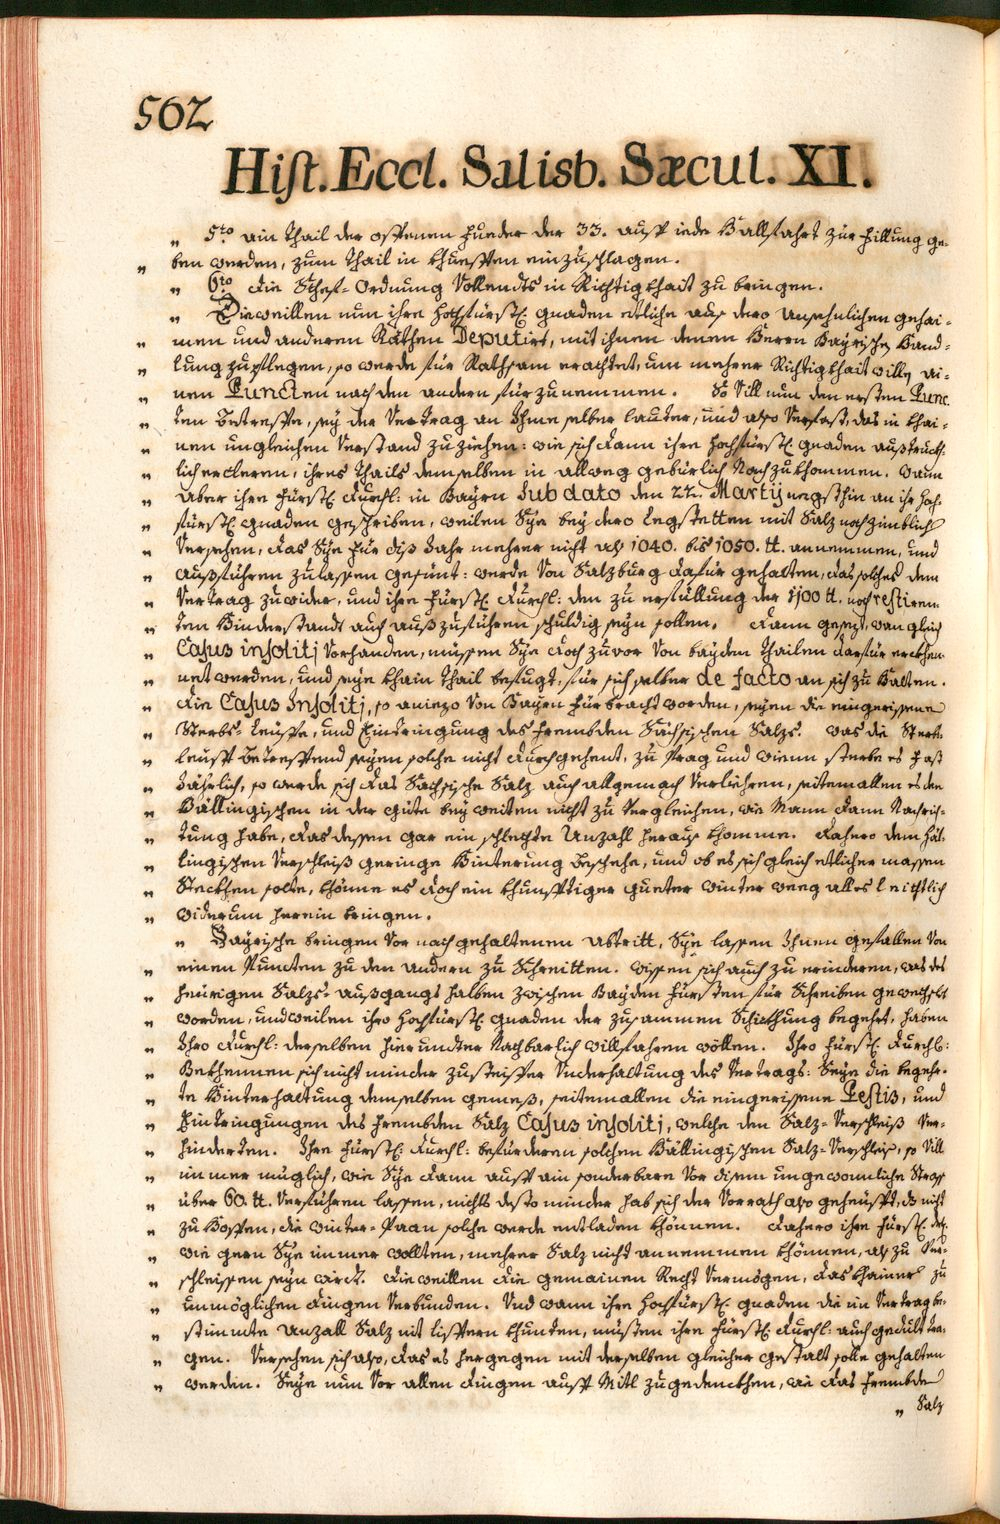 562
Hist. Eccl. Salisb. Sæcul. XI.
„ 5to ain Thail der offenen Fueder der 33. auff iede Wallfahrt zur Fillung ge-
„ ben werden, zum Thail in Khueffen einzuschlagen.
„ 6to die Schef-Ordnung Vollendts in Richtigkhait zu bringen.
„ Dieweillen nun ihre Hochfürstl. gnaden etliche aus dero Ansehnlichen gehai-
„ men und anderen Räthen Deputirt, mit ihnen denen Herrn Bayrischen Hand-
„ lung zu pflegen, so werde für Rathsam erachtet, um mehrer Richtigkhait willen ai-
„ nen Puncten nach den andern fürzunemmen. So Vill nun den ersten Punc-
„ ten Betreffe, sey der Vertrag an Ihme selber lauter, und also Verfast, das in khai-
„ nen ungleichen Verstand zu ziehen: wie sich dann ihre Hochfürstl. gnaden außtruckh-
„ lich ercleren, ihres Thails demselben in allweg gebürlich Nachzukhommen. Wann
„ Aber ihre Fürstl. Durchl: in Bayrn Sub dato den 22. Martij negsthin an ihr Hoch-
„ fürstl. gnaden geschriben, weilen Sye bey dero Legstetten mit Salz noch zimblich
„ Versehen, das Sye für diß Jahr mehrer nicht als 1040. bis 1050. tt. annemmen, und
„ Außführen zulassen gesünt: werde Von Salzburg dafür gehalten, das solches dem
„ Vertrag zuwider, und ihre Fürstl. Durchl: den zu erfüllung der 1100 tt. noch restiren-
„ ten Hinderstandt auch außzuführen schuldig seyn sollen. Dann gesezt, wan gleich
„ Casus insolitj Vorhanden, müssen Sye doch zuvor Von bayden Thailen darfür erkhen-
„ net werden, und seye khain Thail befugt, für sich selber de facto an sich zu Halten.
„ Die Casus Insolitj, so aniezo Von Bayrn fürbracht worden, seyen die eingerissene
„ Sterbs-Leüffe, und Eintringung des frembden Sächsischen Salzs. Was die Sterbs-
„ leüff Betreffend seyen solche nicht durchgehent, zu Prag und Wienn sterbe es fast
„ Jährlich, so werde sich das Sächsische Salz auch allgemach Verliehren, seitemallen es dem
„ Hällingischen in der güte bey weiten nicht zu Vergleichen, wie Mann dann Nachrich-
„ tung habe, das dessen gar ein schlechte Anzahl heraus khomme. Dahero dem Häl-
„ lingischen Verschleiß geringe Hinterung Beschehe, und ob es sich gleich etlicher massen
„ Steckhen solte, khönne es doch ein khunfftiger gueter Winter weeg alles leichtlich
„ widerum herein bringen.
„ Bayrische bringen Vor nach gehaltenen Abtritt, Sye lassen Ihnen gefallen Von
„ einen Puncten zu den andern zu Schreitten. Wissen sich auch zu erinderen, was des
„ heürigen Salzs-Außgangs halben zwischen Bayden Fürsten für Schreiben gewechslet
„ worden, und weilen ihro Hochfürstl. gnaden der zusammen Schickhung begehrt, haben
„ Ihro Durchl: derselben hierundter Nachbarlich willfahren wöllen. Ihro Fürstl. Durchl:
„ Bekhennen sich nicht minder zu steiffer Underhaltung des Vertrags: Seye die begehr-
„ te Hinterhaltung demselben gemeß, seitemallen die eingerissene Pestis, und
„ Eintringungen des frembden Salz Casus insolitj, welche den Salz-Verschleiß Ver-
„ hinderten. Ihre Fürstl. Durchl: befürderen solchen Hällingischen Salz-Verschleis, so Vill
„ immer müglich, wie Sye dann auff ain sonderbare Vor disem ungewonnliche Strass
„ über 60. tt. Verführen lassen, nichts desto minder hab sich der Vorrath also gehäufft, das nicht
„ zu Hoffen, die Winter-Paan solche werde entladen khönnen. Dahero ihre Fürstl. Dchl.
„ wie gern Sye immer wollten, mehrer Salz nicht annemmen khönnen, als zu Ver-
„ schleissen seyn wirdt. Dieweillen die gemainen Recht Vermögen, das khainer zu
„ unmöglichen Dingen Verbunden. Und wann ihre Hochfürstl. gnaden die im Vertrag be-
„ stimmte Anzall Salz nit liffern khunten, müsten ihre Fürstl. Durchl: auch gedult tra-
„ gen. Versehen sich also, das es hergegen mit derselben gleicher gestalt solle gehalten
„ werden. Seye nun Vor allen Dingen auff Mitl zugedenckhen, wie das frembde
„ Salz